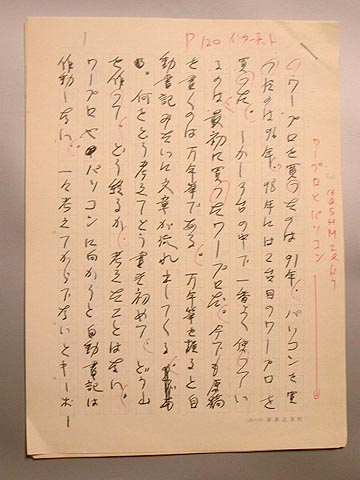 P120 イラーネト
ワープロとパソコン
ワープロを買ったのは91年。パソコンを買
ったのは96年。98年には2台目のワープロを
買った。しかし3台の中で一番よく使ってい
るのは最初に買ったワープロだ。今でも原稿
を書くのは万年筆である。万年筆を握ると自
動書記みたいに文章が流れ出してくる
。何をどう考えてどう書き初めて、どう山
を作って、どう終るか、考えたことはない。
ワープロやパソコンに向かうと自動書記は
作動しない。一々考えてからでないとキーボー